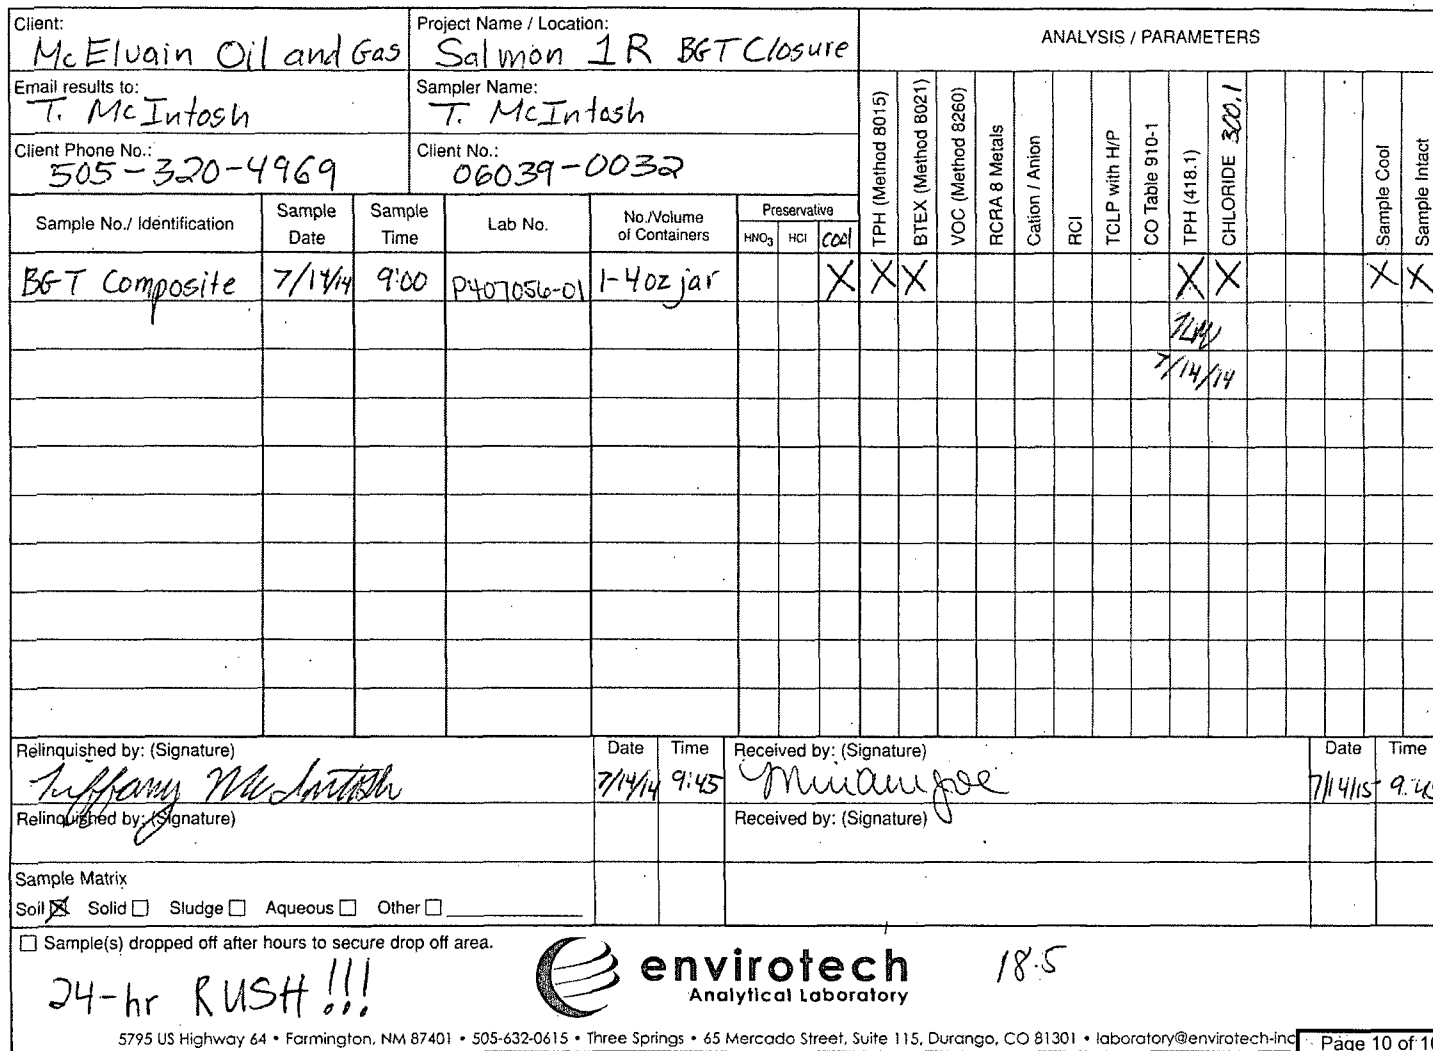 Client:
McElvain Oil and Gas
Project Name / Location:
Salmon 1R BGT Closure
ANALYSIS / PARAMETERS
Email results to:
T. McIntosh
Sampler Name:
T. McIntosh
Client Phone No.:
505-320-4969
Client No.:
06039-0032
Sample No./ Identification
Sample Date
Sample Time
Lab No.
No./Volume of Containers
Preservative
HNO3 HCl cool
TPH (Method 8015)
BTEX (Method 8021)
VOC (Method 8260)
RCRA 8 Metals
Cation / Anion
RCI
TCLP with H/P
CO Table 910-1
TPH (418.1)
CHLORIDE 300.1
Sample Cool
Sample Intact
BGT Composite 7/14/14 9:00 P407056-01 1-4oz jar X X X X X X X
7/14/14
Relinquished by: (Signature)
Tiffany McIntosh
Date
7/14/14
Time
9:45
Received by: (Signature)
Date
7/14/15
Time
9:45
Relinquished by: (Signature)
Received by: (Signature)
Sample Matrix
Soil X Solid Sludge Aqueous Other
Sample(s) dropped off after hours to secure drop off area.
24-hr RUSH!!!
envirotech
Analytical Laboratory
18.5
5795 US Highway 64 • Farmington, NM 87401 • 505-632-0615 • Three Springs • 65 Mercado Street, Suite 115, Durango, CO 81301 • laboratory@envirotech-inc
Page 10 of 10